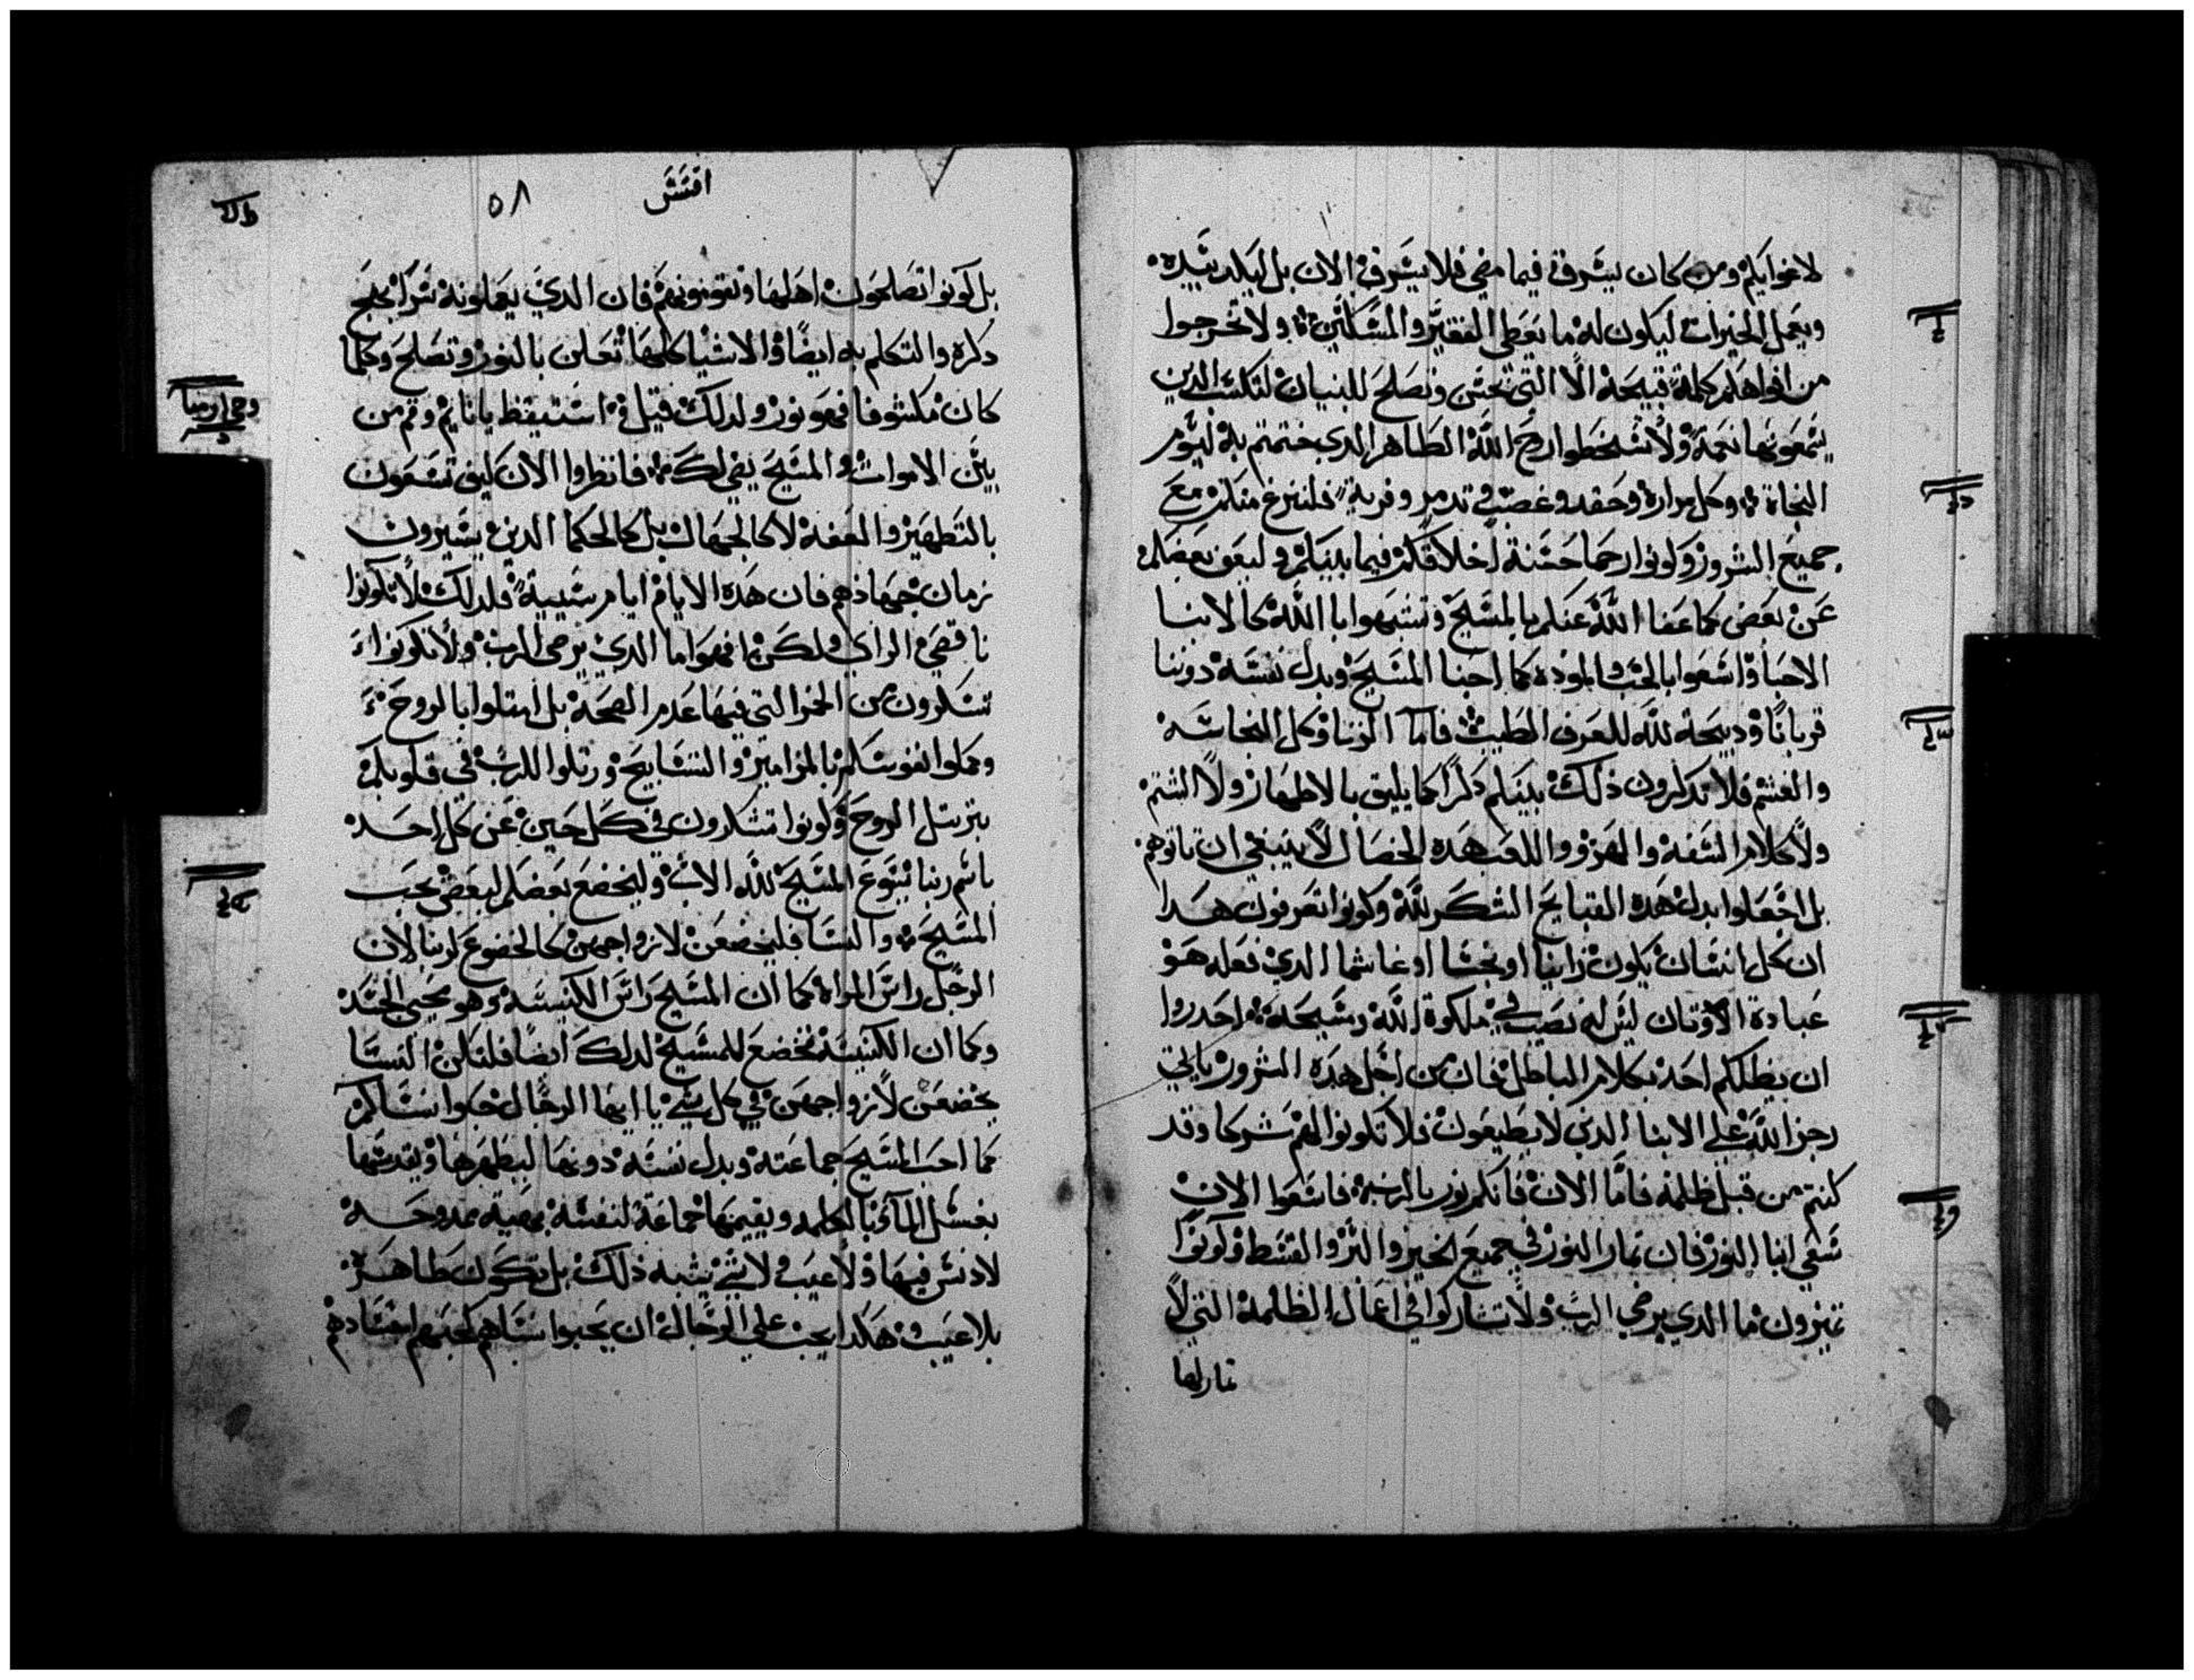 لاغوايكم ومن كان يسرق فيما مضي فلا يسرق الان بل ليكد بيديه
ويعمل الخيرات ليكون له ما يعطي الفقير والمسكين ولا تخرجوا
من افواهكم كلمة قبيحة الا التي تحسن وتصلح للبنيان لتكسب الدين
يسمعونها نعمة ولا تسخطوا روح الله الطاهر الدي ختمتم به ليوم
النجاة وكل مرارة وحقد وغضب وتدمر وفرية فلتنزع منكم مع
جميع الشرور وكونوا رحما حسنة اخلاقكم فيما بينكم وليعف بعضكم
عن بعض كما عفا الله عنكم بالمسيح وتشبهوا با الله كالابنا
الاحبا واسعوا بالحب والموده كما احبنا المسيح وبدل نفسه دوننا
قربانا ودبيحة لله للعرف الطيب فاما الزنا وكل النجاسه
والغشم فلا تدكرون ذلك بينكم دكرا كما يليق بالاطهار ولا الشتم
ولا كلام السفه والهزو واللعب هده الخصال لا ينبغي ان تاتوهم
بل اجعلوا بدل هده القبايح الشكر لله وكونوا تعرفون هدا
ان كل انسان يكون زانيا او نجسا او غاشما الدي فعله هو
عبادة الاوتان ليس له نصيب في ملكوة الله ومسيحه احدروا
ان يظلكم احد بكلام الباطل فان من اجل هده الشرور ياتي
رجز الله علي الابنا الدين لا يطيعون فلا تكونوا لهم شركا وقد
كنتم من قبل ظلمة فاما الان فانكم نور بالرب فاسعوا الان
سعي ابنا النور فان تمار النور في جميع الخير والبر والقسط وكونوا
تميزون ما الدي يرضي الرب ولا تشاركوا في اعمال الظلمة التي لا
تمار لها
افسس
٥٨
بل كونوا تصلحون اهلها وتقوموهم فان الدي يعملونه سرا يقبح
دكره والتكلم به ايضا والاشيا كلها تعلن بالنور وتصلح وكلما
كان مكشوفا فهو نور ولدلك قيل استيقظ يا نايم وقم من
بين الاموات والمسيح يضي لك فانظروا الان كيف تسعون
بالتطهير والعفة لا كالجهال بل كالحكما الدين يشيرون
زمان جهادهم فان هده الايام ايام سيية فلدلك لا تكونوا
ناقصي الراي ولكن افهموا ما الدي يرضي الرب ولا تكونوا
تسكرون من الخمر التي فيها عدم الصحة بل امتلوا بالروح
وكملوا نفوسكم بالمزامير والتسابيح ورتلوا للرب في قلوبكم
بترتيل الروح وكونوا تشكرون في كل حين عن كل احد
باسم ربنا يسوع المسيح لله الاب وليخضع بعضكم لبعض بحب
المسيح والنسا فليخضعن لازواجهن كالخضوع لربنا لان
الرجل راس المراه كما ان المسيح راس الكنيسه وهو محيي الجسد
وكما ان الكنيسة تخضع للمسيح لدلك ايضا فلتكن النسا
يخضعن لازواجهن في كل شي يا ايها الرجال حبوا نساكم
كما احب المسيح جماعته وبدل نفسه دونها ليطهرها ويقدسها
بغسل الماء بالكلمه ويقيمها جماعة لنفسه بهية ممدوحه
لا دنس فيها ولا عيب ولا شي يشبه ذلك بل تكون طاهرة
بلا عيب هكدا يجب علي الرجال ان يحبوا نساهم كحبهم اجسادهم